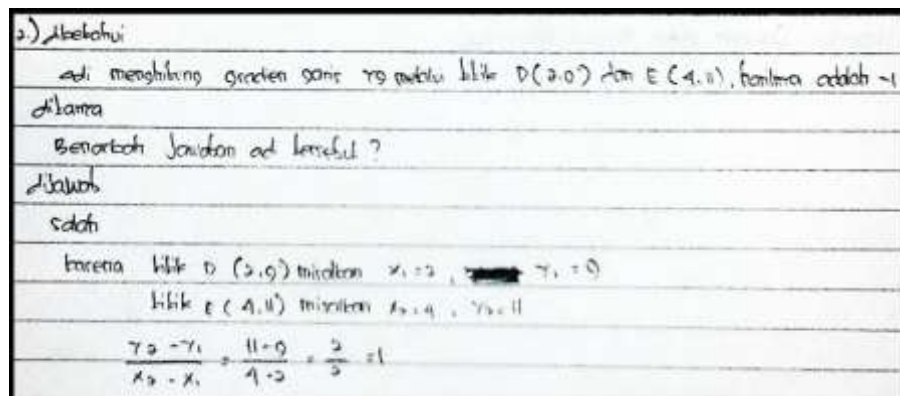 2.) diketahui
adi menghitung gradien garis yg melalui titik D (2,9) dan E (4,11), hasilnya adalah -1
ditanya
Benarkah Jawaban adi tersebut ?
dijawab
salah
karena titik D (2,9) misalkan x₁ = 2, y₁ = 9
titik E (4,11) misalkan x₂ = 4, y₂ = 11
y₂ - y₁ / x₂ - x₁ = 11 - 9 / 4 - 2 = 2 / 2 = 1